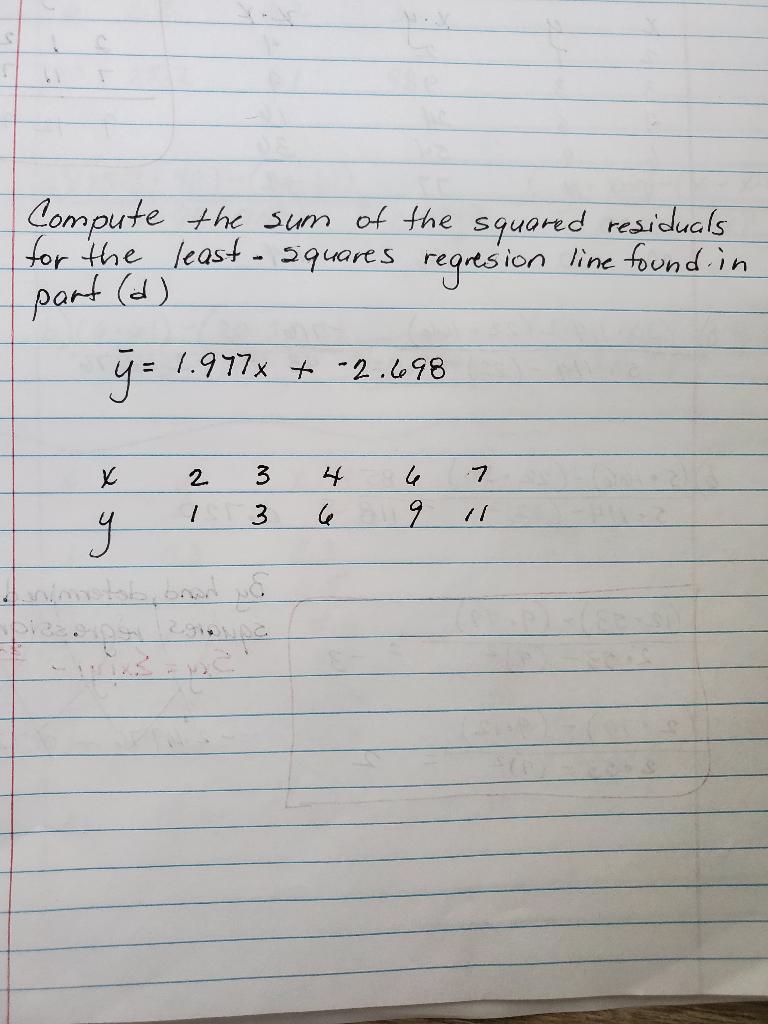 Compute the sum of the squared residuals
for the least - squares regresion line found in
part (d)
ȳ = 1.977x + -2.698
x 2 3 4 6 7
y 1 3 6 9 11